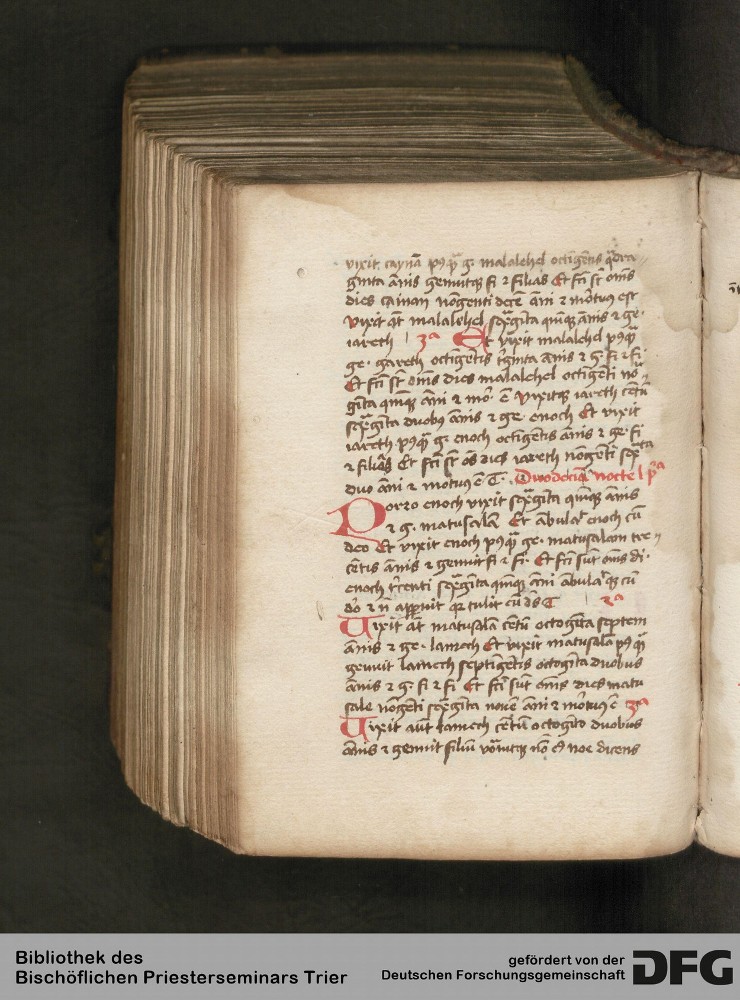 vixit caynā pꝯq̄ꝫ g. malalehel octīgētis q̄dra
gīnta ānis genuitqꝫ fi ⁊ filias Et fcī sūt om̄s
dies cainan nōgenti decē āni ⁊ mortuꝯ est
vixit āt malalehel sexagīta quīqꝫ ānis ⁊ ge·
iareth 3ᵃ Et vixit malalehel pꝯq̄ꝫ
ge· gareth octīgētis tⁱgīnta ānis ⁊ g· fi ⁊ fi·
Et fcī sūt om̄s dies malalehel octīgēti nō
gīta quīqꝫ āni ⁊ mo· ē vixitqꝫ iareth cētū
sexagīta duobꝯ ānis ⁊ ge· enoch Et vixit
iareth pꝯq̄ꝫ g· enoch octīgētis ānis ⁊ ge· fi
⁊ filias Et fcī sūt oēs dies iareth nōgēti sexᵗᵃ
duo āni ⁊ mortuꝯ ē T· Duodecīa nocte l pᵃ
Porro enoch vixit sexagīta quīqꝫ ānis
⁊ g· matusalā Et ābulaᵗ enoch cū
deo Et vixit enoch pꝯq̄ꝫ ge· matusalam tre
cētis ānis ⁊ genuit fi ⁊ fi· Et fcī sūt om̄s di·
enoch trēcenti sexagīta quīqꝫ āni ābulaᵗqꝫ cū
dō ⁊ nō appuit qꝛ tulit cū ds T 2ᵃ
Vixit āt matusalā cētū octogīta septem
ānis ⁊ ge· lamech Et vixit matusalā pꝯq̄ꝫ
genuit lamech septīgētis octogīta duobus
ānis ⁊ g· fi ⁊ fi Et fcī sūt om̄s dies matu
sale nōgēti sexagīta nouē āni ⁊ mortuꝯ ē 3ᵃ
Vixit aūt lamech cētū octogīto duobus
ānis ⁊ genuit filiū vōcauitqꝫ nōē eiꝯ noe dicens
Bibliothek des
Bischöflichen Priesterseminars Trier
gefördert von der
Deutschen Forschungsgemeinschaft
DFG